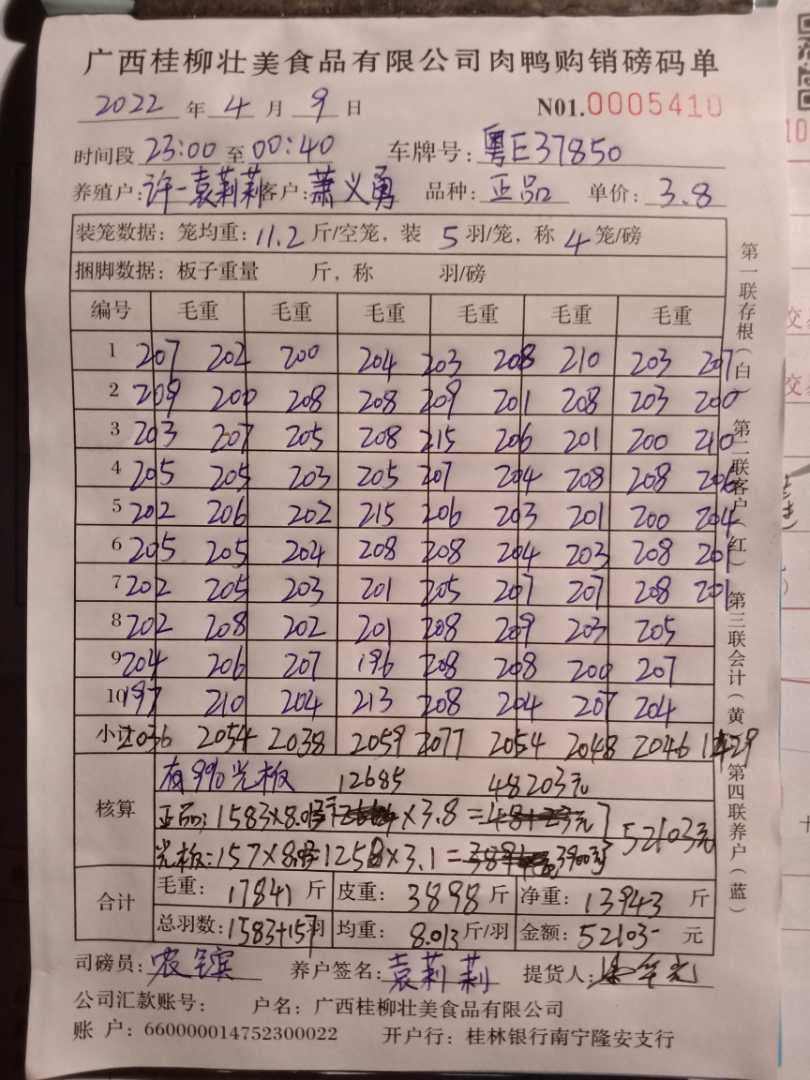 广西桂柳壮美食品有限公司肉鸭购销磅码单
2022 年 4 月 9 日 N01.0005410
时间段 23:00 至 00:40 车牌号: 粤E37850
养殖户: 许一袁莉莉 客户: 萧义勇 品种: 正品 单价: 3.8
装笼数据: 笼均重: 11.2 斤/空笼, 装 5 羽/笼, 称 4 笼/磅
捆脚数据: 板子重量 斤, 称 羽/磅
编号 毛重 毛重 毛重 毛重 毛重 毛重
1 207 202 200 204 203 208 210 203 207
2 209 200 208 208 209 201 208 203 200
3 203 207 205 208 215 206 201 200 210
4 205 205 203 205 207 204 208 208 206
5 202 206 202 215 206 203 201 200 204
6 205 205 204 208 208 204 203 208 201
7 202 205 203 201 205 207 207 208 201
8 202 208 202 201 208 209 203 205
9 204 206 207 196 208 208 200 207
10 197 210 204 213 208 204 207 204
小计 2036 2054 2038 2059 2077 2054 2048 2046 1429
核算
有9%光板 12685 48203元
正品: 1583×8.013= ×3.8= 52103元
光板: 157×8.013 1258×3.1= 3900元
合计
毛重: 17841 斤 皮重: 3898 斤 净重: 13943 斤
总羽数: 1583+157 羽 均重: 8.013 斤/羽 金额: 52103 元
司磅员: 养户签名: 袁莉莉 提货人:
公司汇款账号: 户名: 广西桂柳壮美食品有限公司
账 户: 660000014752300022 开户行: 桂林银行南宁隆安支行
第一联存根(白) 第二联客户(红) 第三联会计(黄) 第四联养户(蓝)